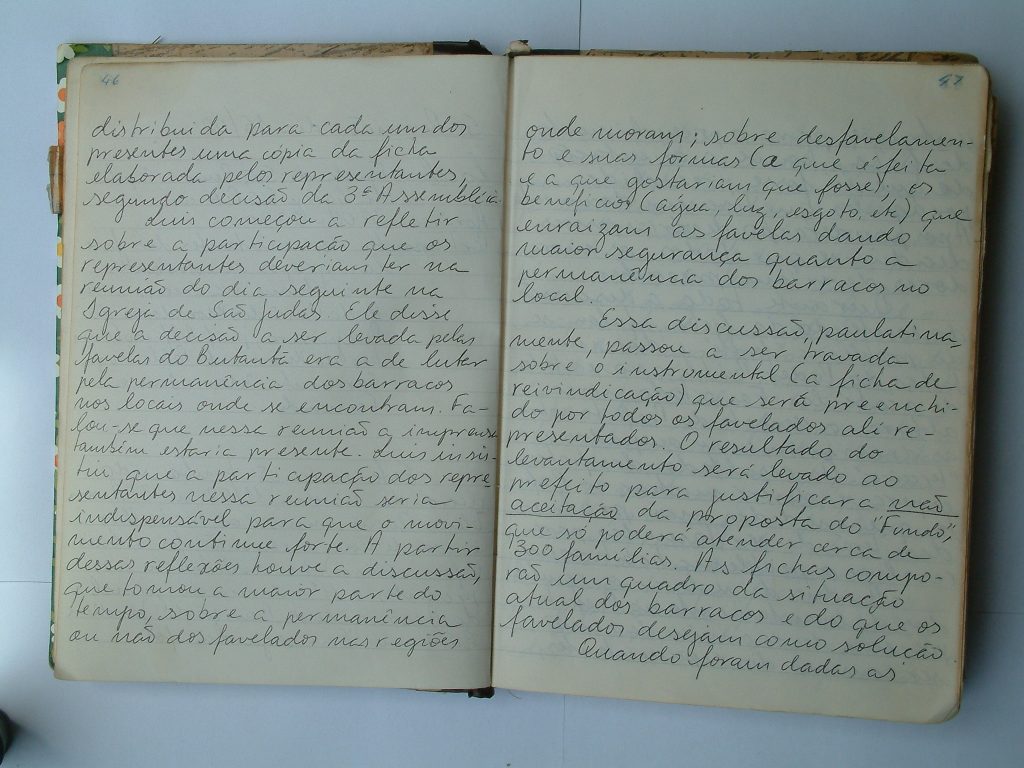 46
distribuida para cada um dos
presentes uma cópia da ficha
elaborada pelos representantes,
segundo decisão da 3ª Assembléia.
Luis começou a refletir
sobre a participação que os
representantes deveriam ter na
reunião do dia seguinte na
Igreja de São Judas. Ele disse
que a decisão a ser levada pelas
favelas do Butantã era a de lutar
pela permanência dos barracos
nos locais onde se encontram. Fa-
lou-se que nessa reunião a imprensa
também estaria presente. Luis insis-
tiu que a participação dos repre-
sentantes nessa reunião seria
indispensável para que o movi-
mento continue forte. A partir
dessas reflexões houve a discussão,
que tomou a maior parte do
tempo, sobre a permanência
ou não dos favelados nas regiões
47
onde moram; sobre desfavelamen-
to e suas formas (a que é feita
e a que gostariam que fosse); os
benefícios (água, luz, esgoto, etc) que
enraizam as favelas dando
maior segurança quanto a
permanência dos barracos no
local.
Essa discussão, paulatina-
mente, passou a ser travada
sobre o instrumental (a ficha de
reivindicação) que será preenchi-
do por todos os favelados ali re-
presentados. O resultado do
levantamento será levado ao
prefeito para justificar a não
aceitação da proposta do "Fundo",
que só poderá atender cerca de
300 famílias. As fichas compo-
rão um quadro da situação
atual dos barracos e do que os
favelados desejam como solução.
Quando foram dadas as